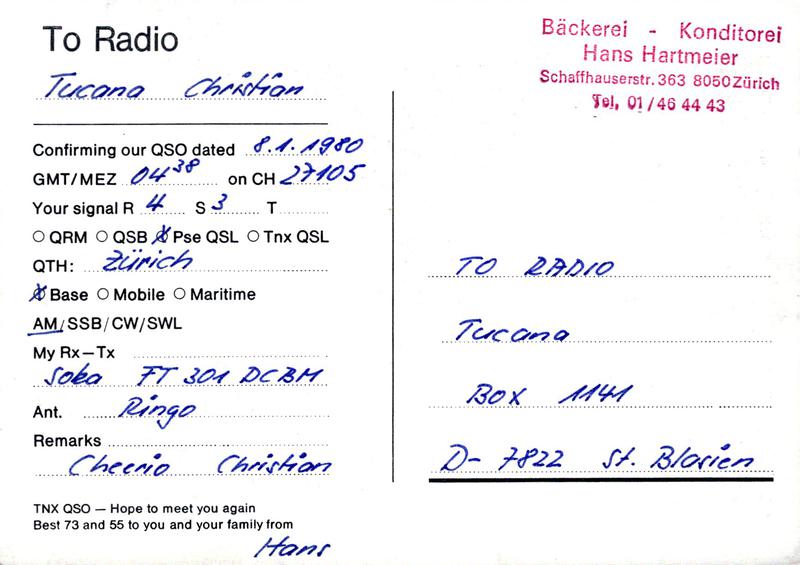 To Radio
Tucana Christian
Confirming our QSO dated 8.1.1980
GMT/MEZ 04³⁸ on CH 27105
Your signal R 4 S 3 T
QRM QSB Pse QSL Tnx QSL
QTH: Zürich
Base Mobile Maritime
AM/SSB/CW/SWL
My Rx–Tx
Soka FT 301 DCBM
Ant. Ringo
Remarks
Cheerio Christian
TNX QSO — Hope to meet you again
Best 73 and 55 to you and your family from
Hans
Bäckerei - Konditorei
Hans Hartmeier
Schaffhauserstr. 363 8050 Zürich
Tel, 01/46 44 43
TO RADIO
Tucana
BOX 1141
D- 7822 St. Blasien